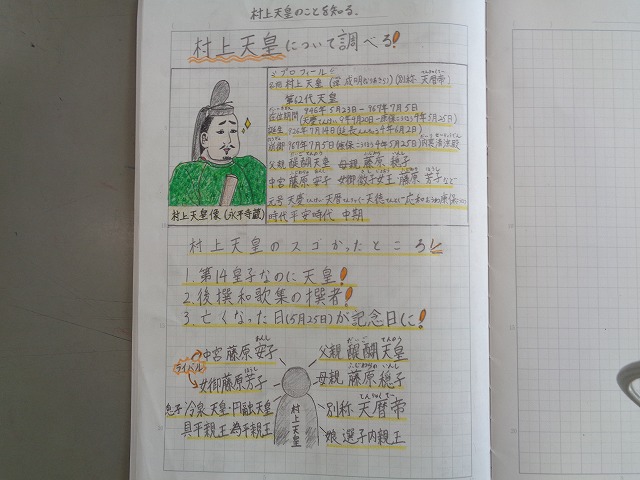 村上天皇のことを知る.
村上天皇について調べる!
プロフィール
名前 村上天皇 (諱 成明なりあきら) (別称 天暦帝)
第62代天皇
在位期間 946年5月23日-967年7月5日
(天慶てんけい9年4月20日-康保こうほう4年5月25日)
誕生 926年7月14日(延長えんちょう4年6月2日)
崩御 967年7月5日(康保こうほう4年5月25日)
父親 醍醐天皇 母親 藤原 穏子
中宮 藤原 安子 女御 徽子女王 藤原 芳子など
元号 天慶 天暦 天徳 応和 康保
時代 平安時代 中期
村上天皇像 (永平寺蔵)
村上天皇のスゴかったところ!!
1.第14皇子なのに天皇!
2.後撰和歌集の撰者!
3.亡くなった日(5月25日)が記念日に!
中宮 藤原 安子
ライバル
女御藤原芳子
冷泉天皇・円融天皇
具平親王 為平親王
村上天皇
父親 醍醐天皇
母親 藤原 穏子
別称 天暦帝
娘 選子内親王